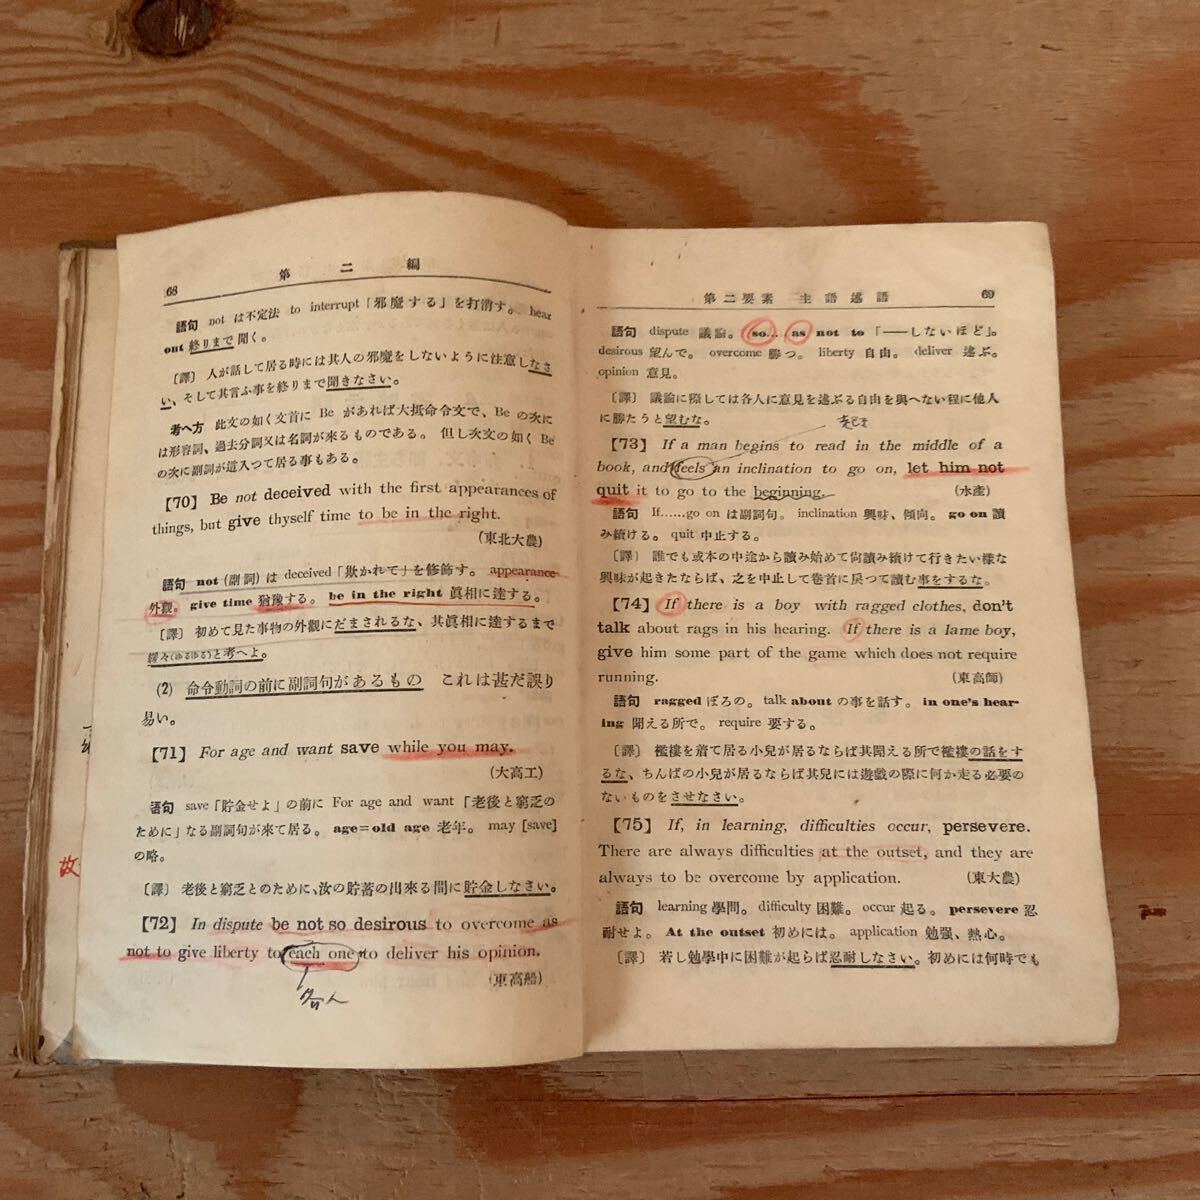 68
第二編
語句 not は不定法 to interrupt「邪魔する」を打消す。 hear
out 終りまで聞く。
〔譯〕 人が話して居る時には其人の邪魔をしないように注意しなさ
い、そして其言ふ事を終りまで聞きなさい。
考へ方 此文の如く文首に Be があれば大抵命令文で、Be の次に
は形容詞、過去分詞又は名詞が來るものである。 但し次文の如く Be
の次に副詞が這入つて居る事もある。
【70】 Be not deceived with the first appearances of
things, but give thyself time to be in the right.
(東北大農)
語句 not (副詞) は deceived「欺かれて」を修飾す。 appearance
外觀。 give time 猶豫する。 be in the right 眞相に達する。
〔譯〕 初めて見た事物の外觀にだまされるな、其眞相に達するまで
緩々(ゆるゆる)と考へよ。
(2) 命令動詞の前に副詞句があるもの これは甚だ誤り
易い。
【71】 For age and want save while you may.
(大高工)
語句 save「貯金せよ」の前に For age and want「老後と窮乏の
ために」なる副詞句が來て居る。 age=old age 老年。 may [save]
の略。
〔譯〕 老後と窮乏とのために、汝の貯蓄の出來る間に貯金しなさい。
【72】 In dispute be not so desirous to overcome as
not to give liberty to each one to deliver his opinion.
(東高船)
各人
故
第二要素 主語述語
69
語句 dispute 議論。 so... as not to「——しないほど」。
desirous 望んで。 overcome 勝つ。 liberty 自由。 deliver 述ぶ。
opinion 意見。
〔譯〕 議論に際しては各人に意見を述ぶる自由を與へない程に他人
に勝たうと望むな。
【73】 If a man begins to read in the middle of a
book, and feels an inclination to go on, let him not
quit it to go to the beginning.
(水產)
語句 If......go on は副詞句。 inclination 興味、傾向。 go on 讀
み續ける。 quit 中止する。
〔譯〕 誰でも或本の中途から讀み始めて尙讀み續けて行きたい樣な
興味が起きたならば、之を中止して卷首に戾つて讀む事をするな。
【74】 If there is a boy with ragged clothes, don't
talk about rags in his hearing. If there is a lame boy,
give him some part of the game which does not require
running.
(東高師)
語句 ragged ぼろの。 talk about の事を話す。 in one's hear-
ing 聞える所で。 require 要する。
〔譯〕 襤褸を着て居る小兒が居るならば其聞える所で襤褸の話をす
るな、ちんばの小兒が居るならば其兒には遊戲の際に何か走る必要の
ないものをさせなさい。
【75】 If, in learning, difficulties occur, persevere.
There are always difficulties at the outset, and they are
always to be overcome by application.
(東大農)
語句 learning 學問。 difficulty 困難。 occur 起る。 persevere 忍
耐せよ。 At the outset 初めには。 application 勉强、熱心。
〔譯〕 若し勉學中に困難が起らば忍耐しなさい。初めには何時でも